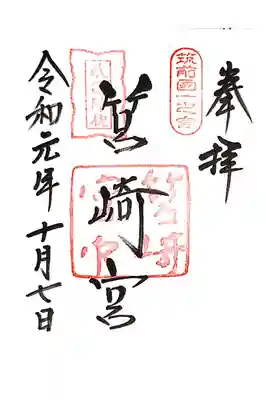 奉拝
筑前國一之宮
筥崎宮
令和元年十月七日